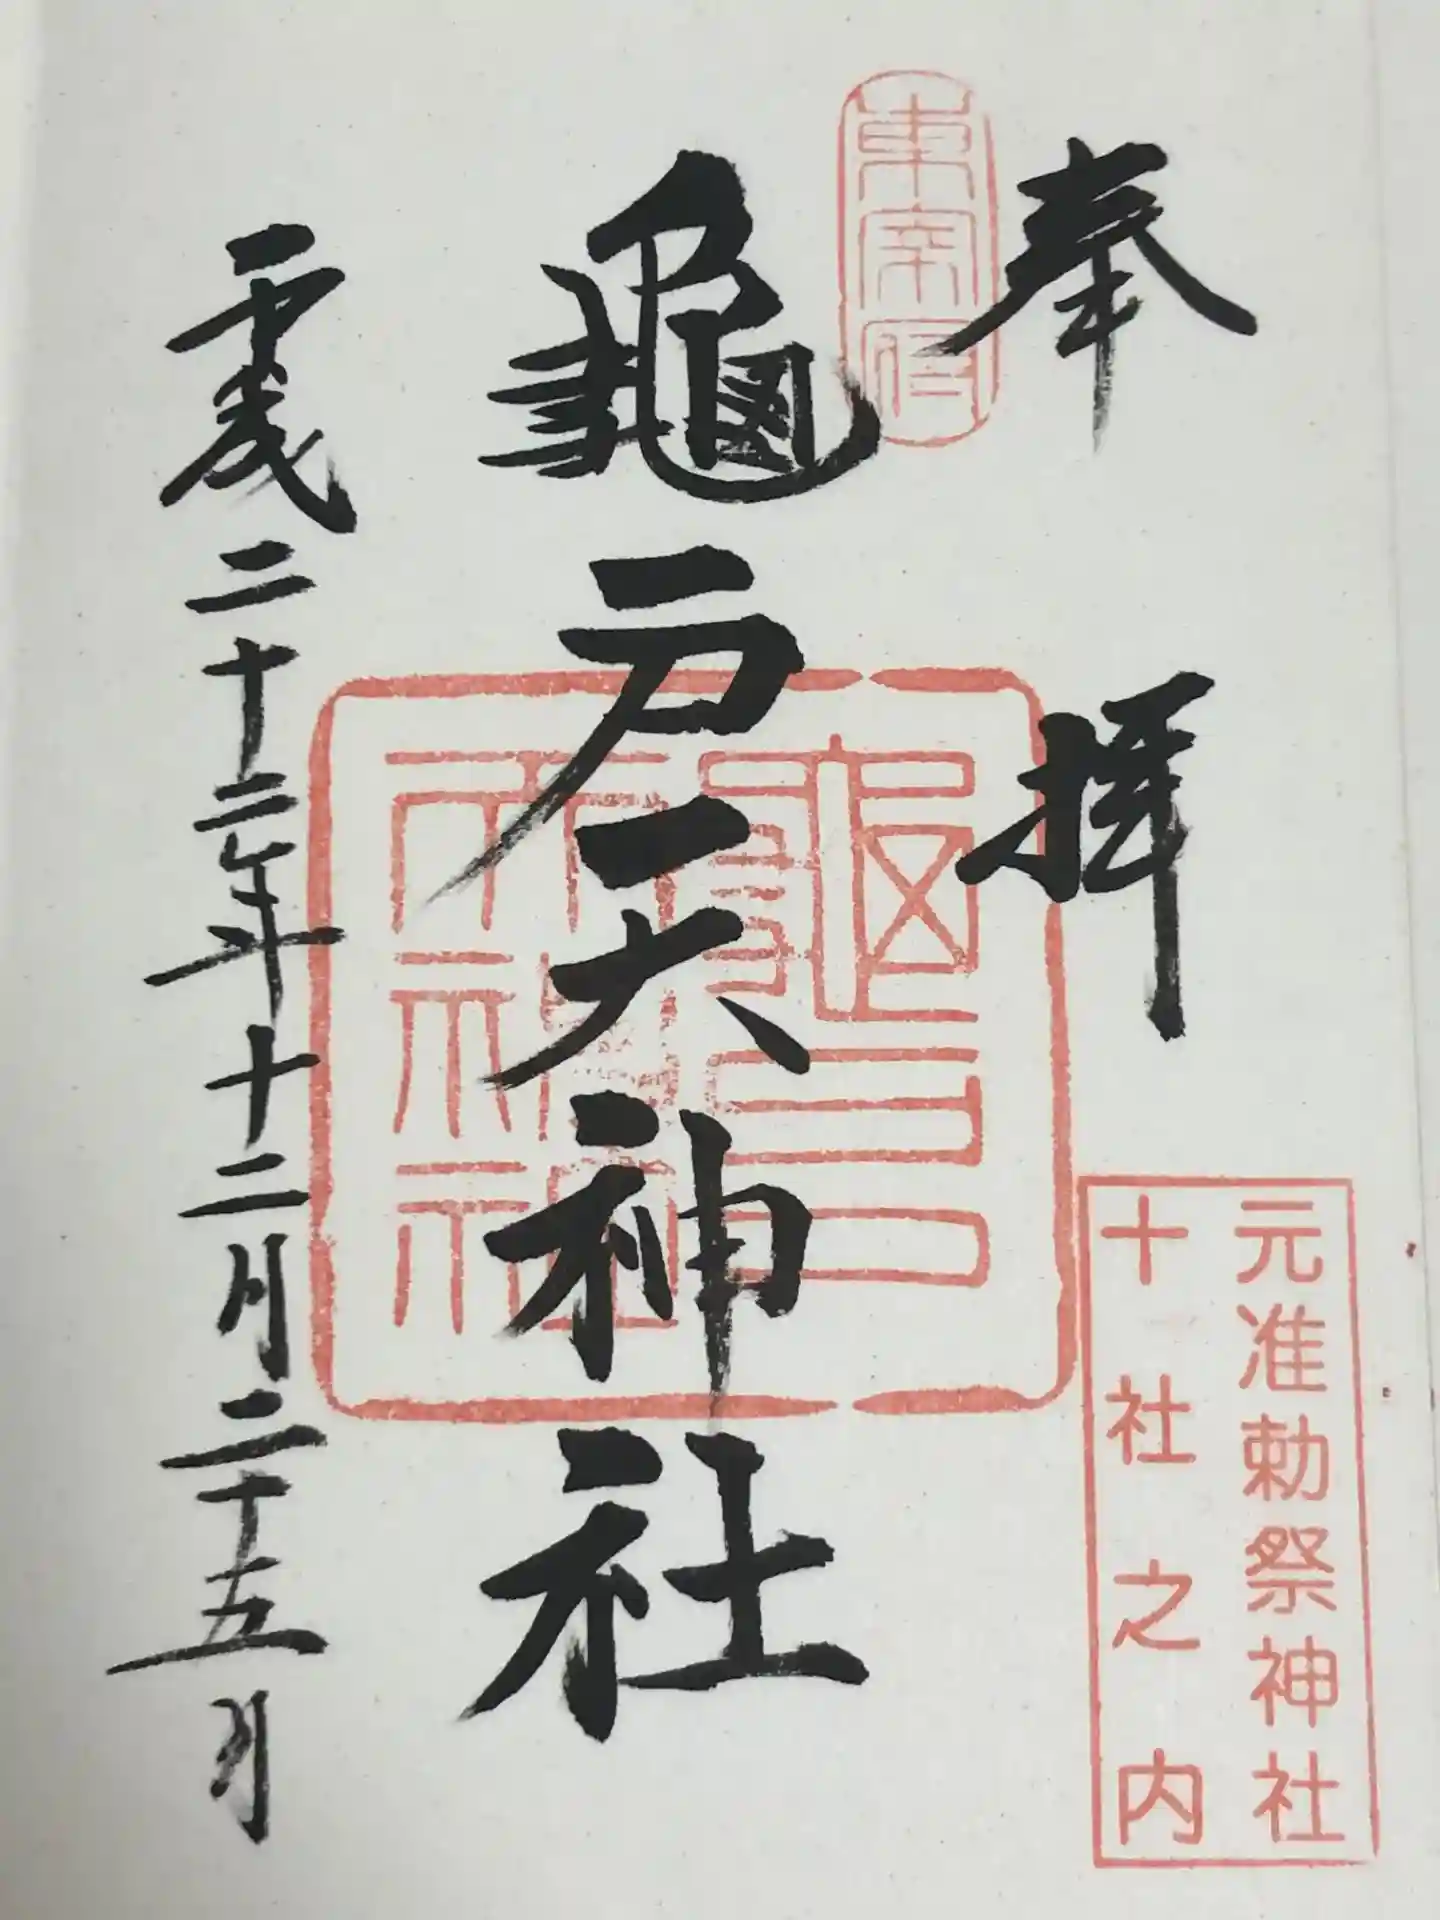 奉拝
東宰府
元准勅祭神社
十社之内
龜戸天神社
龜戸
天神社
平成二十二年十二月二十五日